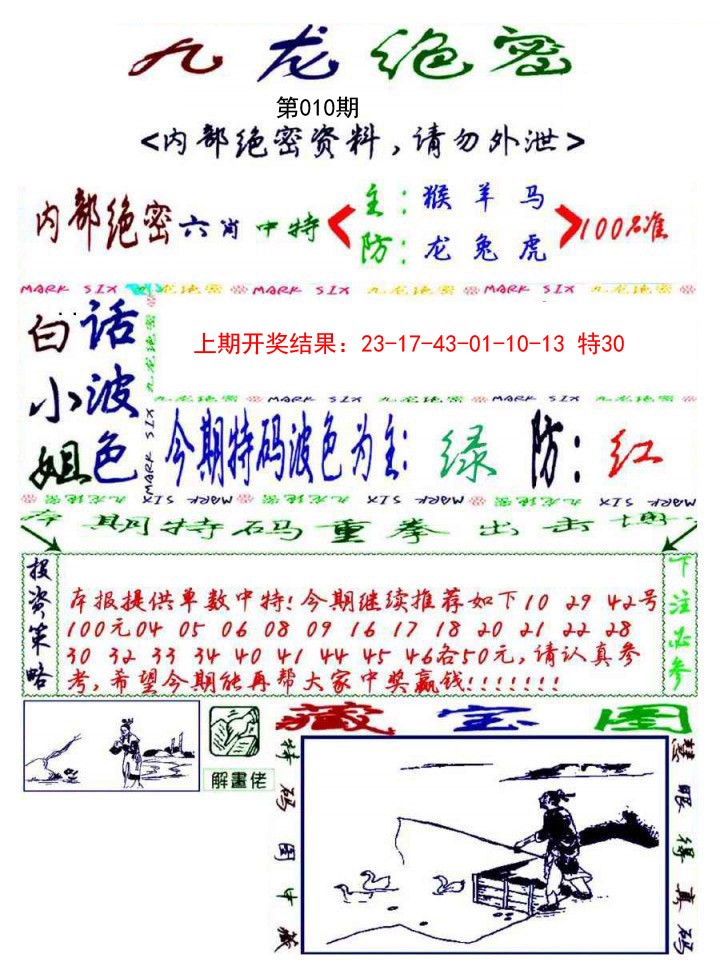 九龙绝密
第010期
<内部绝密资料,请勿外泄>
内部绝密六肖中特
主:猴羊马
防:龙兔虎
100%准
MARK SIX 九龙绝密 MARK SIX 九龙绝密 MARK SIX 九龙绝密
白话
小波
姐色
九龙绝密
MARK SIX
上期开奖结果：23-17-43-01-10-13 特30
九龙绝密 MARK SIX 九龙绝密 MARK SIX 九龙绝密
今期特码波色为主:绿 防:红
九龙绝密 MARK SIX 九龙绝密 MARK SIX 九龙绝密 MARK SIX
本期特码重拳出击博
投资策略
本报提供单数中特!今期继续推荐如下10 29 42号
100元04 05 06 08 09 16 17 18 20 21 22 28
30 32 33 34 40 41 44 45 46各50元,请认真参
考,希望今期能再帮大家中奖赢钱!!!!!!!
下注必参
解畫佬
藏宝图
特码图中藏
慧眼得真码